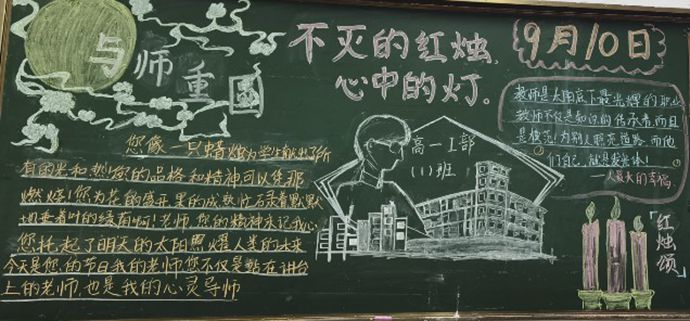 与师重圆
不灭的红烛,
心中的灯。
9月10日
您像一只蜡烛为学生献出了所
有的光和热!您的品格和精神可以集那
燃烧!您为花的盛开果的成熟忙碌着默默
地垂着叶的绿荫啊!老师,您的精神永记我心
您托起了明天的太阳照耀人类的未来
今天是您的节日我的老师您不仅是站在讲台
上的老师也是我的心灵导师
高一1部
(1)班
教师是太阳底下最光辉的职业
教师不仅是知识的传承者而且
是模范!为别人照亮道路,而他
们自己,就是发光体!
——人最大的幸福
「红烛颂」